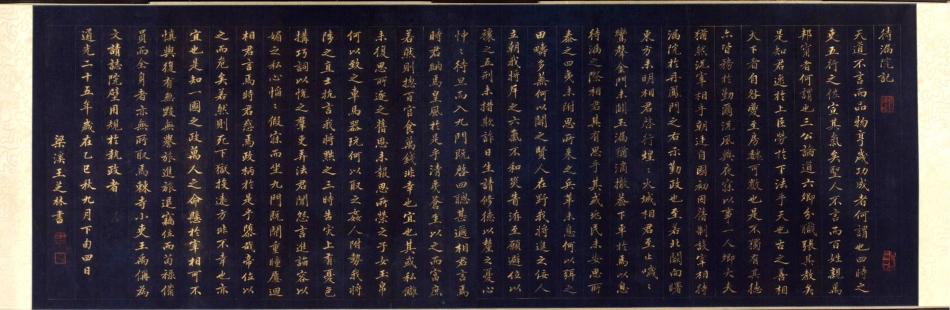 待漏院記
天道不言而品物亨歲功成者何謂也四時之
吏五行之佐宣其氣矣聖人不言而百姓親萬
邦寧者何謂也三公論道六卿分職張其教矣
是知君逸於上臣勞於下法乎天也古之善相
天下者自咎夔至房魏可數也是不獨有其德
亦皆務於勤爾況夙興夜寐以事一人卿大夫
猶然況宰相乎朝廷自國初因舊制設宰相待
漏院於丹鳳門之右示勤政也至若北闕向曙
東方未明相君啓行煌〻火城相君至止噦〻
鸞聲金門未闢玉漏猶滴撤蓋下車於焉以息
待漏之際相君其有思乎其或兆民未安思所
泰之四夷未附思所來之兵革未息何以弭之
田疇多蕪何以闢之賢人在野我將進之佞人
立朝我將斥之六氣不和災眚荐至願避位以
禳之五刑未措欺詐日生請修德以釐之憂心
忡〻待旦而入九門既啓四聰甚邇相君言焉
時君納焉皇風於是乎清夷蒼生以之而富庶
若然則總百官食萬錢非幸也宜也其或私讎
未復思所逐之舊恩未報思所榮之子女玉帛
何以致之車馬器玩何以取之姦人附勢我將
陟之直士抗言我將黜之三時告災上有憂色
構巧詞以悅之羣吏弄法君聞怨言進諂容以
媚之私心慆〻假寐而坐九門既開重瞳屢迴
相君言焉時君惑焉政柄於是乎隳哉帝位以
之而危矣若然則死下獄投遠方非不幸也亦
宜也是知一國之政萬人之命懸於宰相可不
慎與復有無毀無譽旅進旅退竊位而苟祿備
員而全身者亦無所取焉棘寺小吏王禹偁為
文請誌院壁用規於執政者
道光二十五年歲在乙巳秋九月下旬四日
梁溪王芝林書